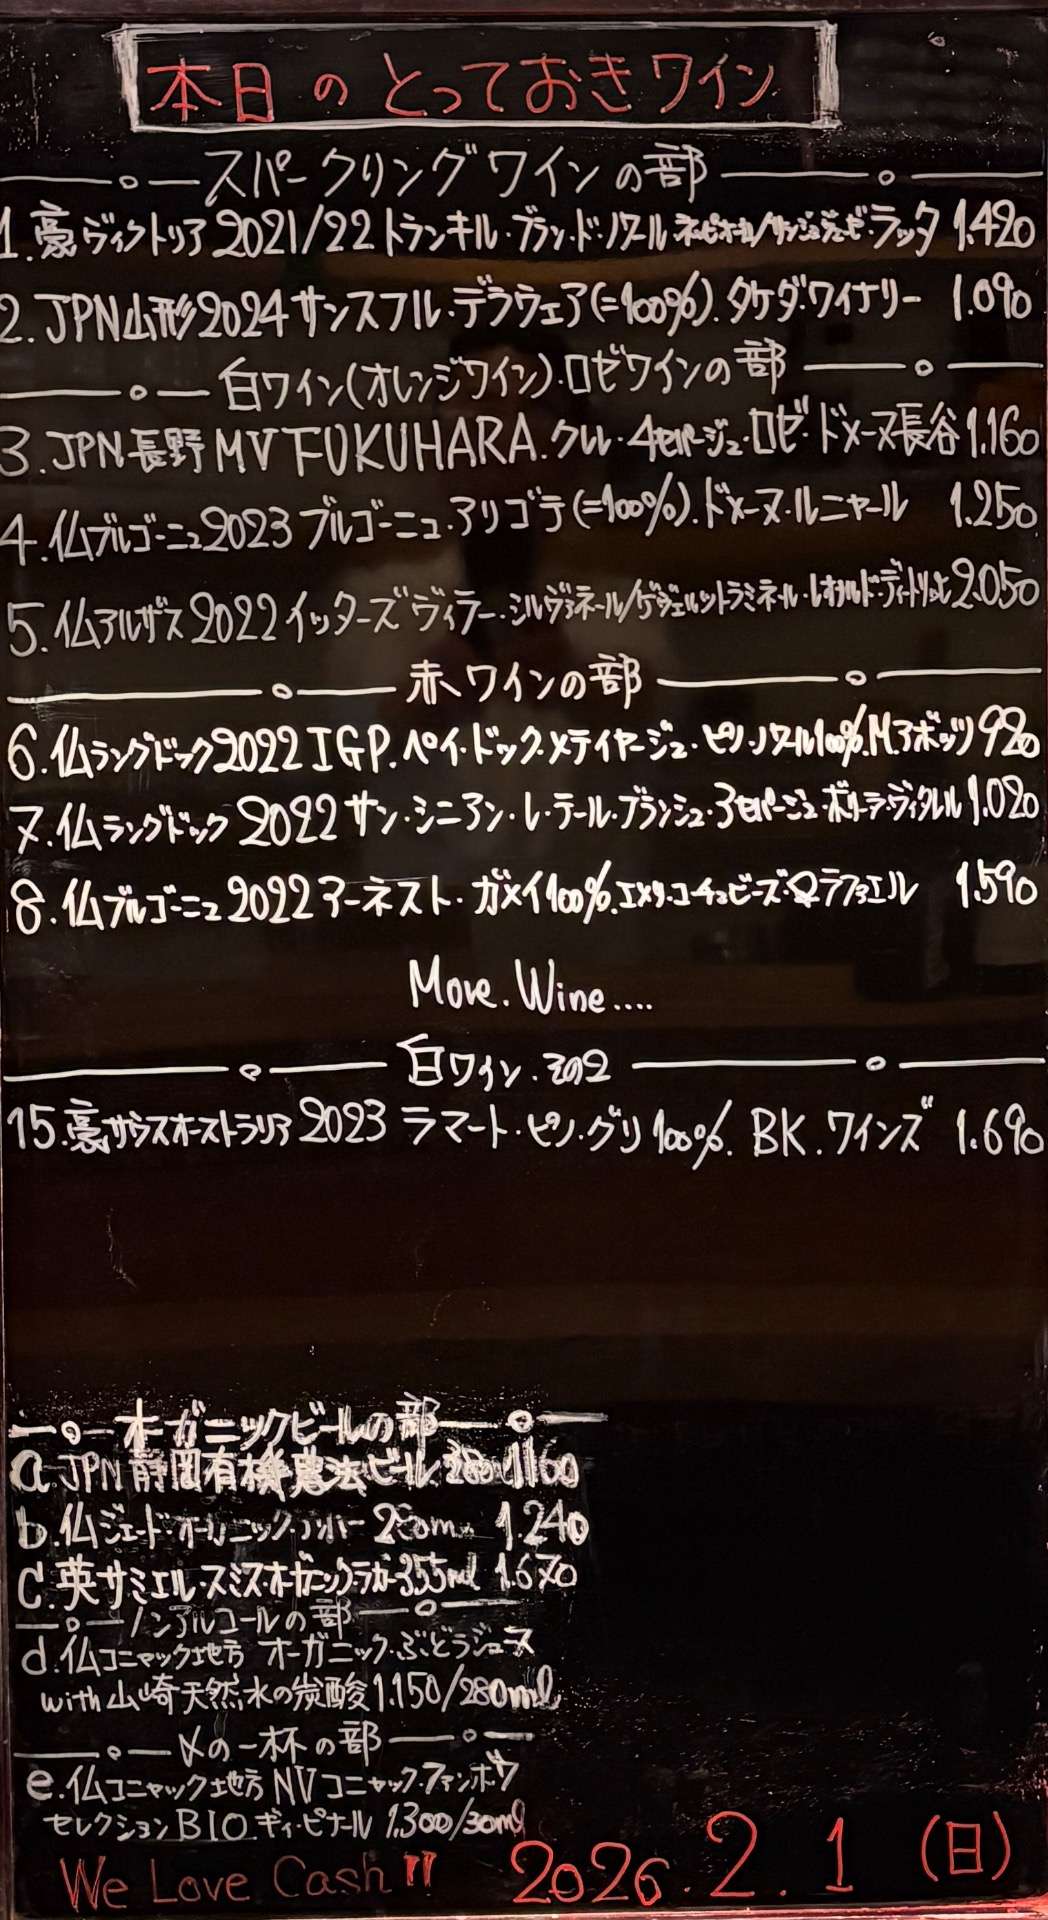 本日のとっておきワイン
スパークリングワインの部
1.豪ヴィクトリア2021/22トランキル・ブラン・ド・ノワール ネッビオーロ/サンジョヴェーゼ・ラッタ 1.420
2.JPN山形2024サンスフル・デラウェア(=100%).タケダ・ワイナリー 1.090
白ワイン(オレンジワイン)・ロゼワインの部
3.JPN.長野MV FUKUHARA.クレレ・4セパージュ・ロゼ・ドメーヌ長谷 1.160
4.仏ブルゴーニュ2023ブルゴーニュ・アリゴテ(=100%).ドメーヌ・ルニャール 1.250
5.仏アルザス2022イッターズヴィラー・シルヴァネール/ゲヴェルットラミネール・レオポルド・ディートリッヒ 2.050
赤ワインの部
6.仏ラングドック2022 IGP.ペイ・ドック・メティヤージュ・ピノ・ノワール100%.M.アボッツ 920
7.仏ラングドック2022サン・シニアン・レ・テール・ブランシュ・3セパージュ・ボリーラ・ヴィタレル 1.020
8.仏ブルゴーニュ2022アーネスト・ガメイ100%.エメリコーチュビーズ&ラファエル 1.590
More.Wine....
白ワイン.その2
15.豪サウスオーストラリア2023ラマート・ピノ・グリ100%.BK.ワインズ 1.690
オーガニックビールの部
a.JPN静岡有機農法ビール 280 1160
b.仏ジェード・オーガニック・アンバー 250ml 1.240
c.英サミエル・スミス・オーガニック・ラガー355ml 1.670
ノンアルコールの部
d.仏コニャック地方 オーガニック・ぶどうジュース
with山崎天然水の炭酸 1.150/280ml
〆の一杯の部
e.仏コニャック地方NVコニャック・ファンボワ
セレクションBIO.ギィ・ピナール 1.300/30ml
We Love Cash!! 2026.2.1(日)